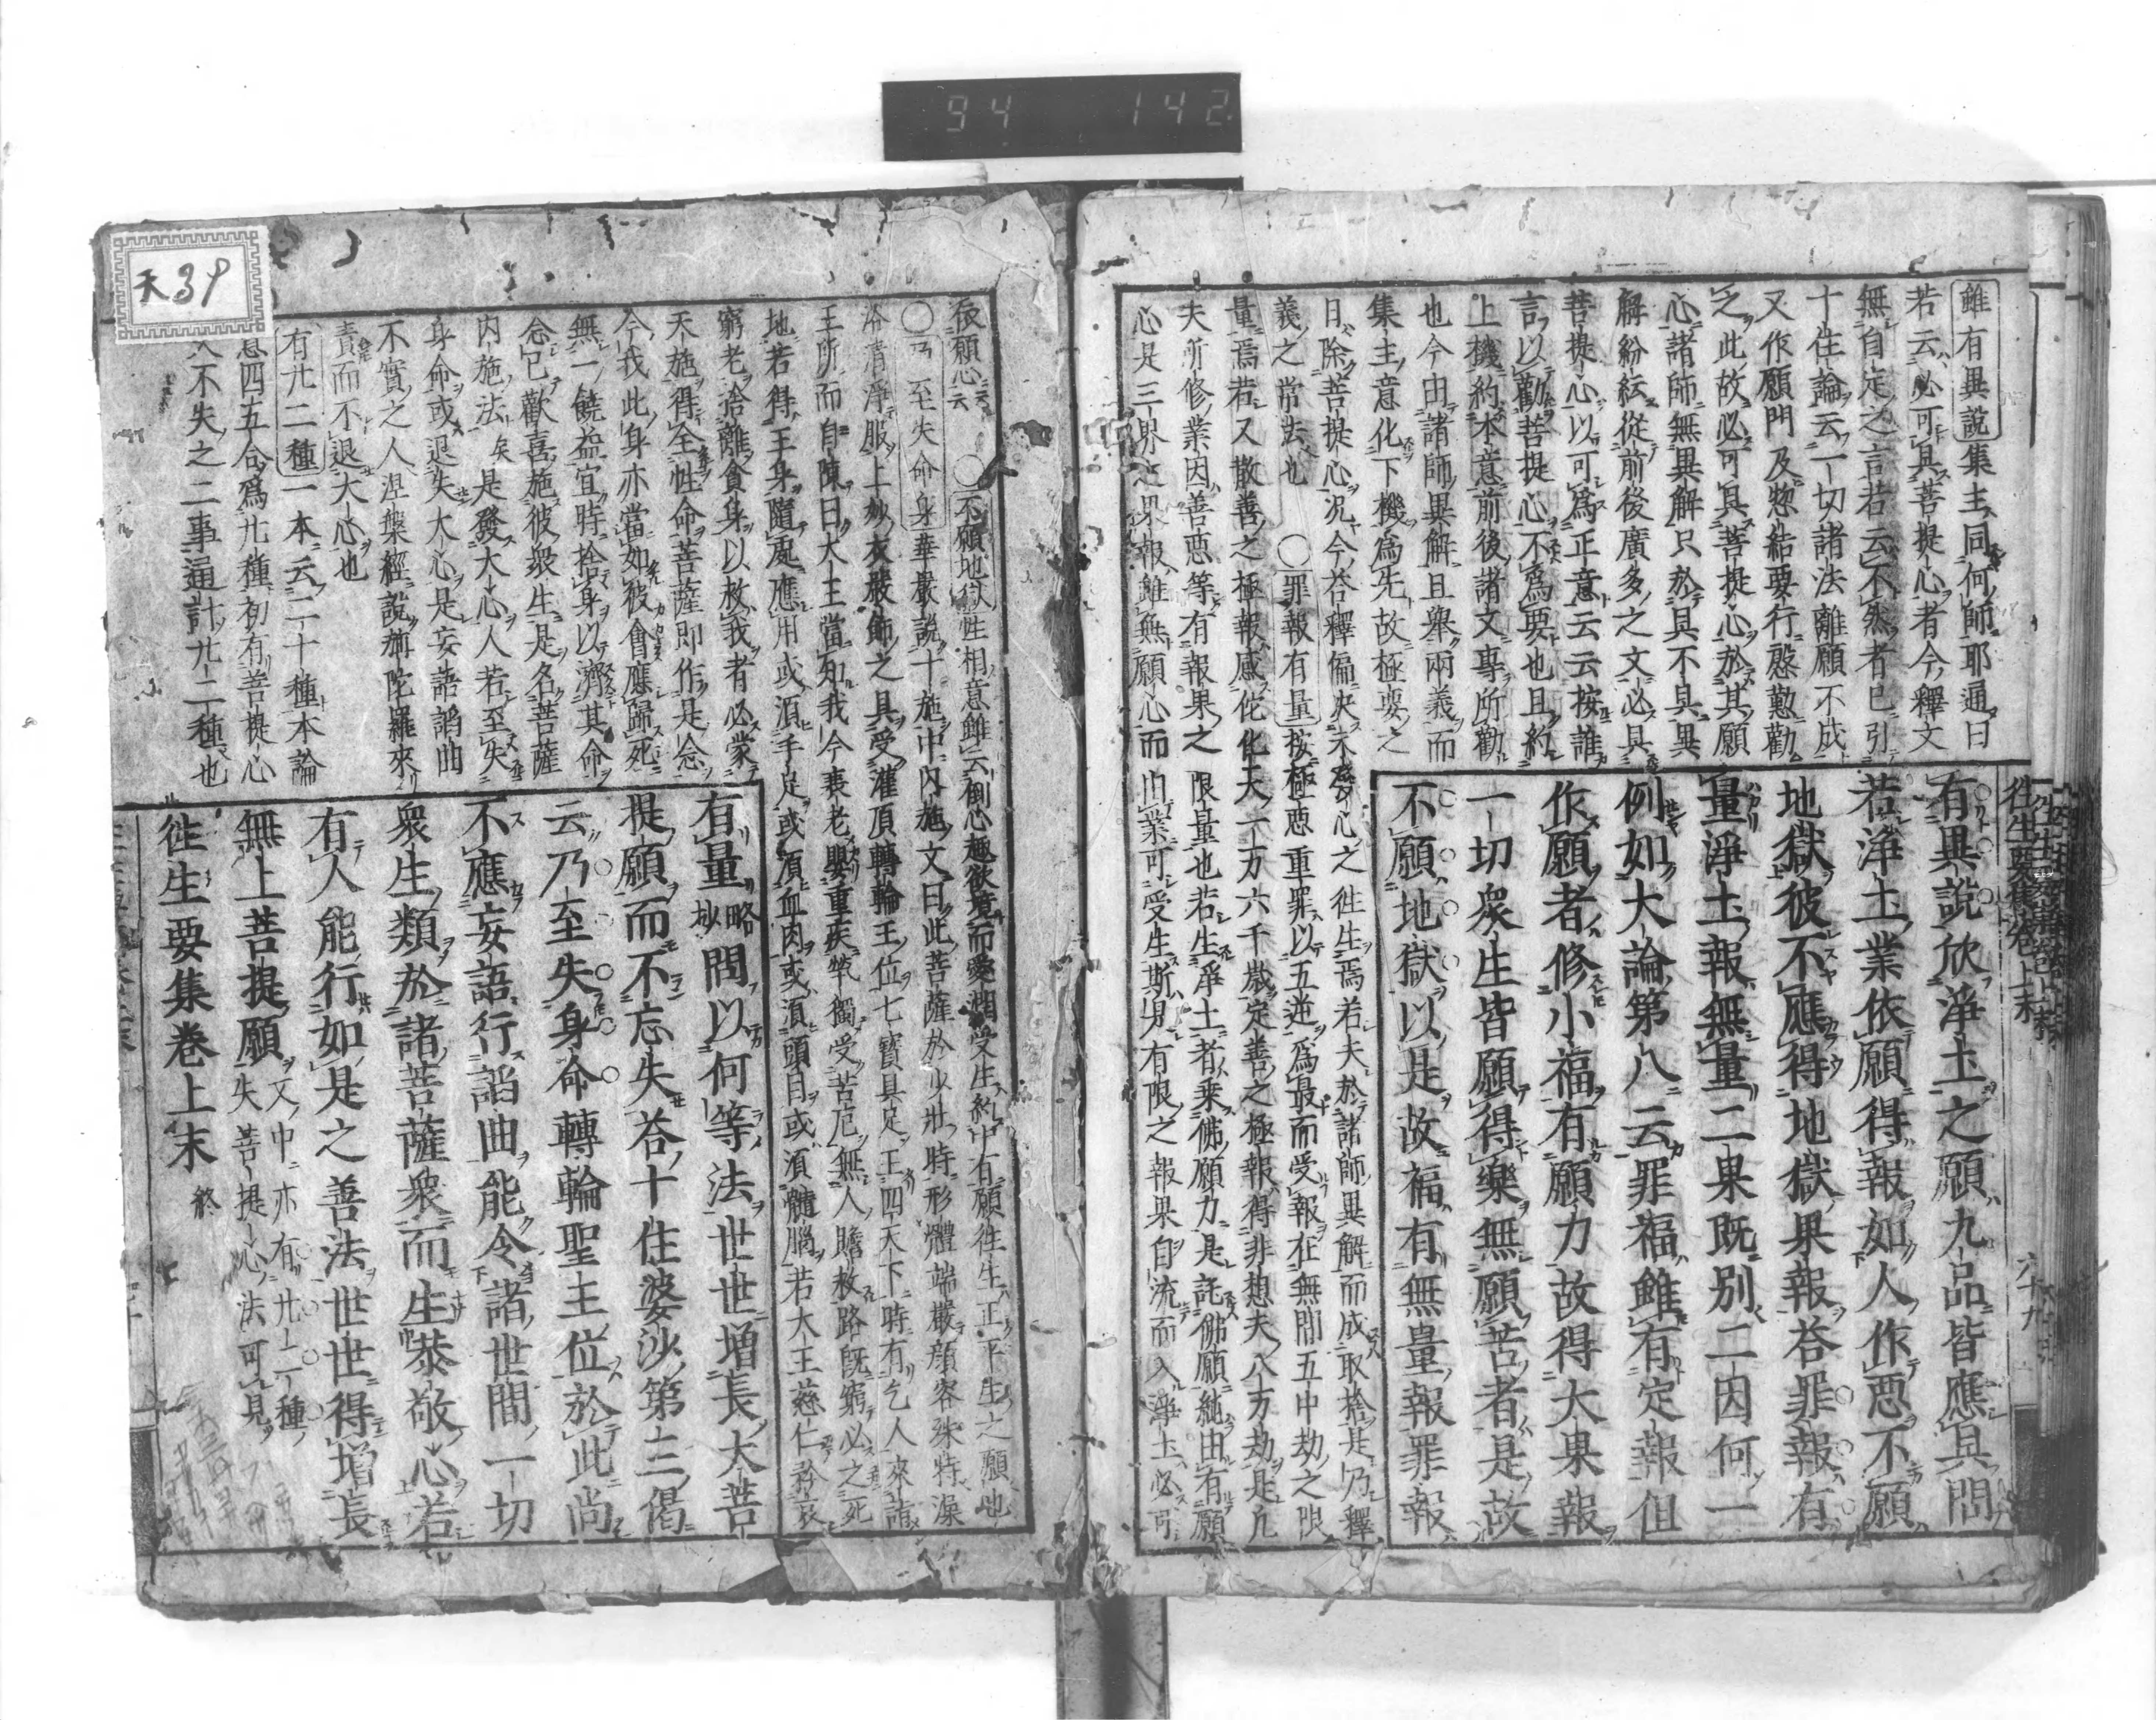 94 142
往生要集卷上末
六十九
雖有異說集主同何師耶通曰
若云必可具菩提心者今釋文
無自定之言若云不然者已引
十住論云一切諸法離願不成
又作願門及惣結要行慇懃勸
之此故必可具菩提心於其願
心諸師無異解只於具不具異
解紛紜從前後廣多之文必具
菩提心以可爲正意云云按誰
言以勸菩提心不爲要也且約
上機約本意前後諸文專所勸
也今由諸師異解且舉兩義而
集主意化下機爲先故極要之
日除菩提心況今答釋偏決未發心之往生焉若夫於諸師異解而成取捨是乃釋
義之常法也 ○罪報有量按極惡重罪以五逆爲最而受報在無間五中劫之限
量焉若又散善之極報感佗化天一万六千歲定善之極報得非想天八万劫是凡
夫所修業因善惡等有報果之限量也若生淨土者乘佛願力是託佛願純由有願
心是三界之果報雖無願心而由業可受生斯乃有限之報果自流而入淨土必可
有異說欣淨土之願九品皆應具問
若淨土業依願得報如人作惡不願
地獄彼不應得地獄果報答罪報有
量淨土報無量二果既別二因何一
例如大論第八云罪福雖有定報但
作願者修小福有願力故得大果報
一切衆生皆願得樂無願苦者是故
不願地獄以是故福有無量報罪報
天39
依願心云云 ○不願地獄性相意雖云倒心趣欲境而愛潤受生約中有願往生正下生之願也
○乃至失命身華嚴說十施中內施文曰此菩薩於少壯時形體端嚴顏容殊特澡
浴清淨服上妙衣嚴飾之具受灌頂轉輪王位七寶具足王四天下時有乞人來詣
王所而自陳曰大王當知我今衰老嬰重疾煢獨受苦厄無人贍救路旣窮必之死
地若得王身隨處應用或須手足或須血肉或須頭目或須髓腦若大王慈仁矜哀
窮老捨離貪身以救我者必蒙
天施得全性命菩薩即作是念
今我此身亦當如彼會應歸死
無一饒益宜時捨身以濟其命
念已歡喜施彼衆生是名菩薩
內施法矣是發大心人若至失
身命或退失大心是妄語諂曲
不實之人涅槃經說
責而不退大心也
有廾二種一本云二十種本論
四五合爲九種初有菩提心
不失之二事通計廾二種也
有量略抄問以何等法世世增長大菩
提願而不忘失答十住婆沙第三偈
云乃至失身命轉輪聖王位於此尚
不應妄語行諂曲能令諸世間一切
衆生類於諸菩薩衆而生恭敬心若
有人能行如是之善法世世得增長
無上菩提願文中亦有廾二種失菩提心法可見
往生要集卷上末 終